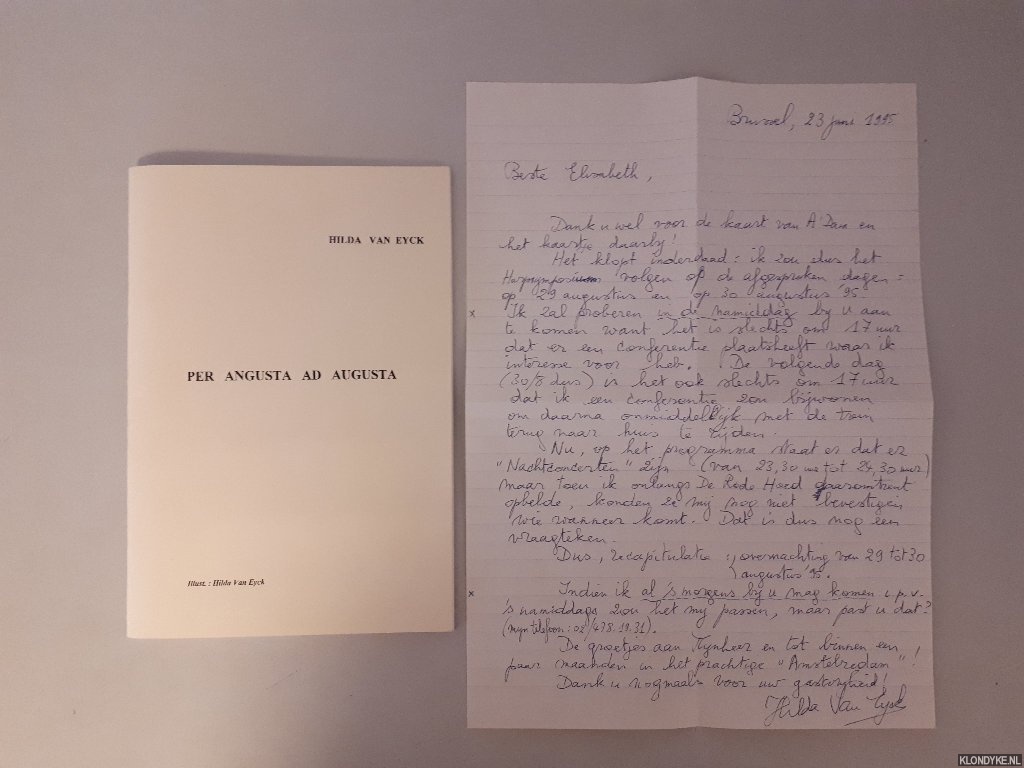 HILDA VAN EYCK
PER ANGUSTA AD AUGUSTA
Illust. : Hilda Van Eyck
Brussel, 23 juni 1995
Beste Elisabeth,
Dank u wel voor de kaart van A' Dam en
het kaartje daarbij!
Het klopt inderdaad : ik zou dus het
Harpsymposium volgen op de afgesproken dagen :
op 29 augustus en op 30 augustus '95.
x Ik zal proberen in de namiddag bij u aan
te komen want het is slechts om 17 uur
dat er een conferentie plaatsheeft waar ik
interesse voor heb. De volgende dag
(30/8 dus) is het ook slechts om 17 uur
dat ik een conferentie zou bijwonen
om daarna onmiddellijk met de trein
terug naar huis te rijden.
Nu, op het programma staat er dat er
"Nachtconcerten" zijn (van 23,30 uur tot 24,30 uur)
maar toen ik onlangs De Rode Hoed daaromtrent
opbelde, konden ze mij nog niet bevestigen
wie wanneer komt. Dat is dus nog een
vraagteken.
Dus, recapitulatie : overnachting van 29 tot 30
augustus '95.
x Indien ik al 's morgens bij u mag komen i.p.v.
's namiddags zou het mij passen, maar past u dat?
(mijn telefoon : 02/478.19.31).
De groetjes aan Mijnheer en tot binnen een
paar maanden in het prachtige "Amstelredam"!
Dank u nogmaals voor uw gastvrijheid!
Hilda Van Eyck
KLONDYKE.NL